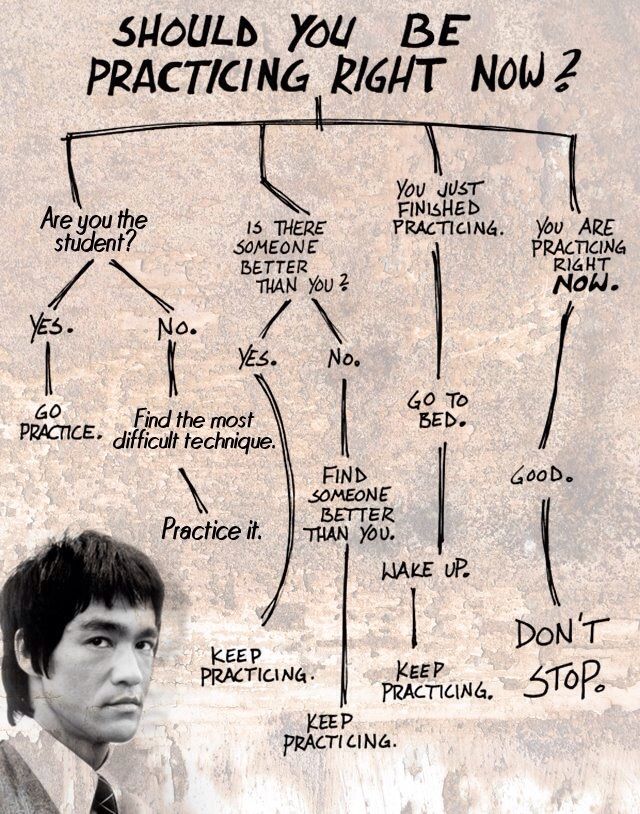 SHOULD YOU BE
PRACTICING RIGHT NOW?
Are you the
student?
YES.
GO
PRACTICE.
NO.
Find the most
difficult technique.
Practice it.
IS THERE
SOMEONE
BETTER
THAN YOU?
YES.
KEEP
PRACTICING.
NO.
FIND
SOMEONE
BETTER
THAN YOU.
KEEP
PRACTICING.
YOU JUST
FINISHED
PRACTICING.
GO TO
BED.
WAKE UP.
KEEP
PRACTICING.
YOU ARE
PRACTICING
RIGHT
NOW.
GOOD.
DON'T
STOP.